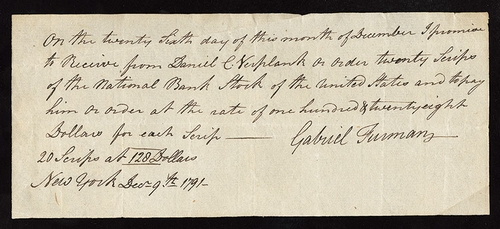 On the twenty Sixth day of this month of December I promise
to Receive from Daniel C Verplank or order twenty Scrips
of the National Bank Stock of the united States and to pay
him or order at the rate of one hundred & twenty eight
Dollars for each Scrip —
Gabriel Furman
20 Scrips at 128 Dollars
New York Decr 9th 1791—